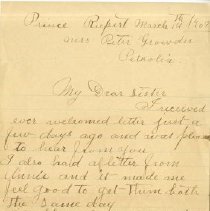 Prince Rupert March
Mrs Peter Growder
Petrolia
My Dear Sister
I received
ever welcomed letter just a
few days ago and was
to hear from you
I also had a letter from
and it made me
feel good to get them both
the same day